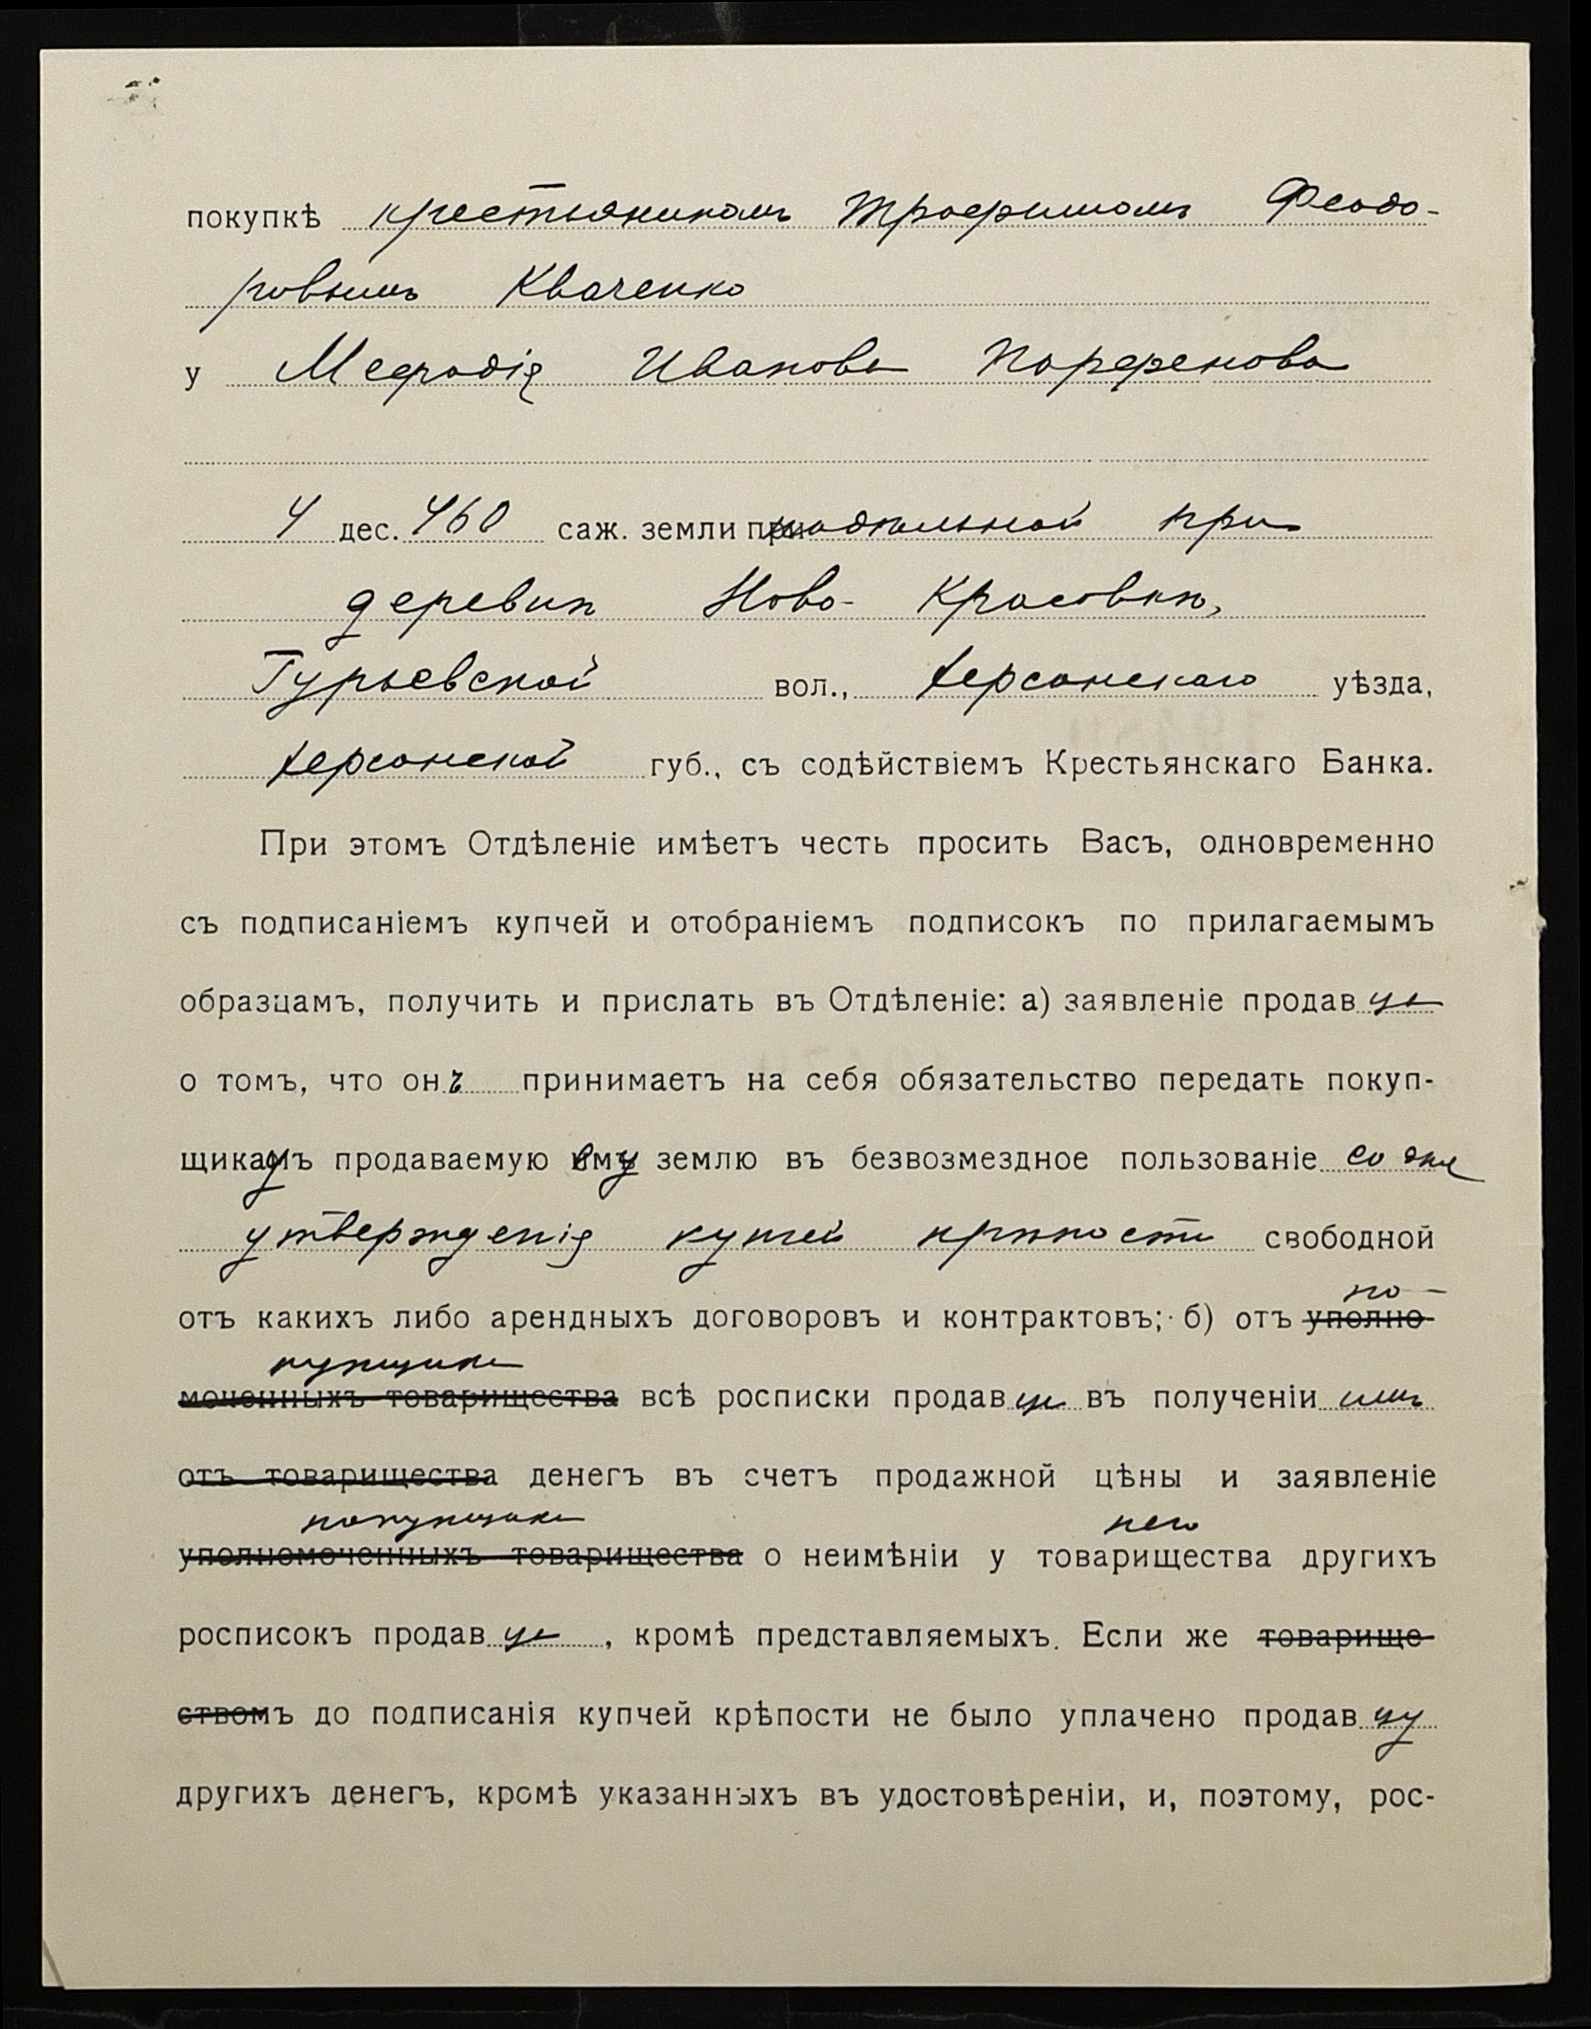 покупкѣ крестьяниномъ Трофимомъ Феодо-
ровымъ Кваченко
у Мефодія Иванова Парфенова
4 дес. 460 саж. земли надѣльной при
деревнѣ Ново-Красовкѣ,
Гурьевской вол., Херсонскаго уѣзда,
Херсонской губ., съ содѣйствіемъ Крестьянскаго Банка.
При этомъ Отдѣленіе имѣетъ честь просить Васъ, одновременно
съ подписаніемъ купчей и отобраніемъ подписокъ по прилагаемымъ
образцамъ, получить и прислать въ Отдѣленіе: а) заявленіе продавца
о томъ, что онъ принимаетъ на себя обязательство передать покуп-
щику продаваемую ему землю въ безвозмездное пользованіе со дня
утвержденія купчей крѣпости свободной
по-
отъ какихъ либо арендныхъ договоровъ и контрактовъ; б) отъ уполно
купщика
моченныхъ товарищества всѣ росписки продавца въ полученіи имъ
отъ товарищества денегъ въ счетъ продажной цѣны и заявленіе
покупщика него
уполномоченныхъ товарищества о неимѣніи у товарищества другихъ
росписокъ продавца, кромѣ представляемыхъ. Если же товарище
ствомъ до подписанія купчей крѣпости не было уплачено продавцу
другихъ денегъ, кромѣ указанныхъ въ удостовѣреніи, и, поэтому, рос-